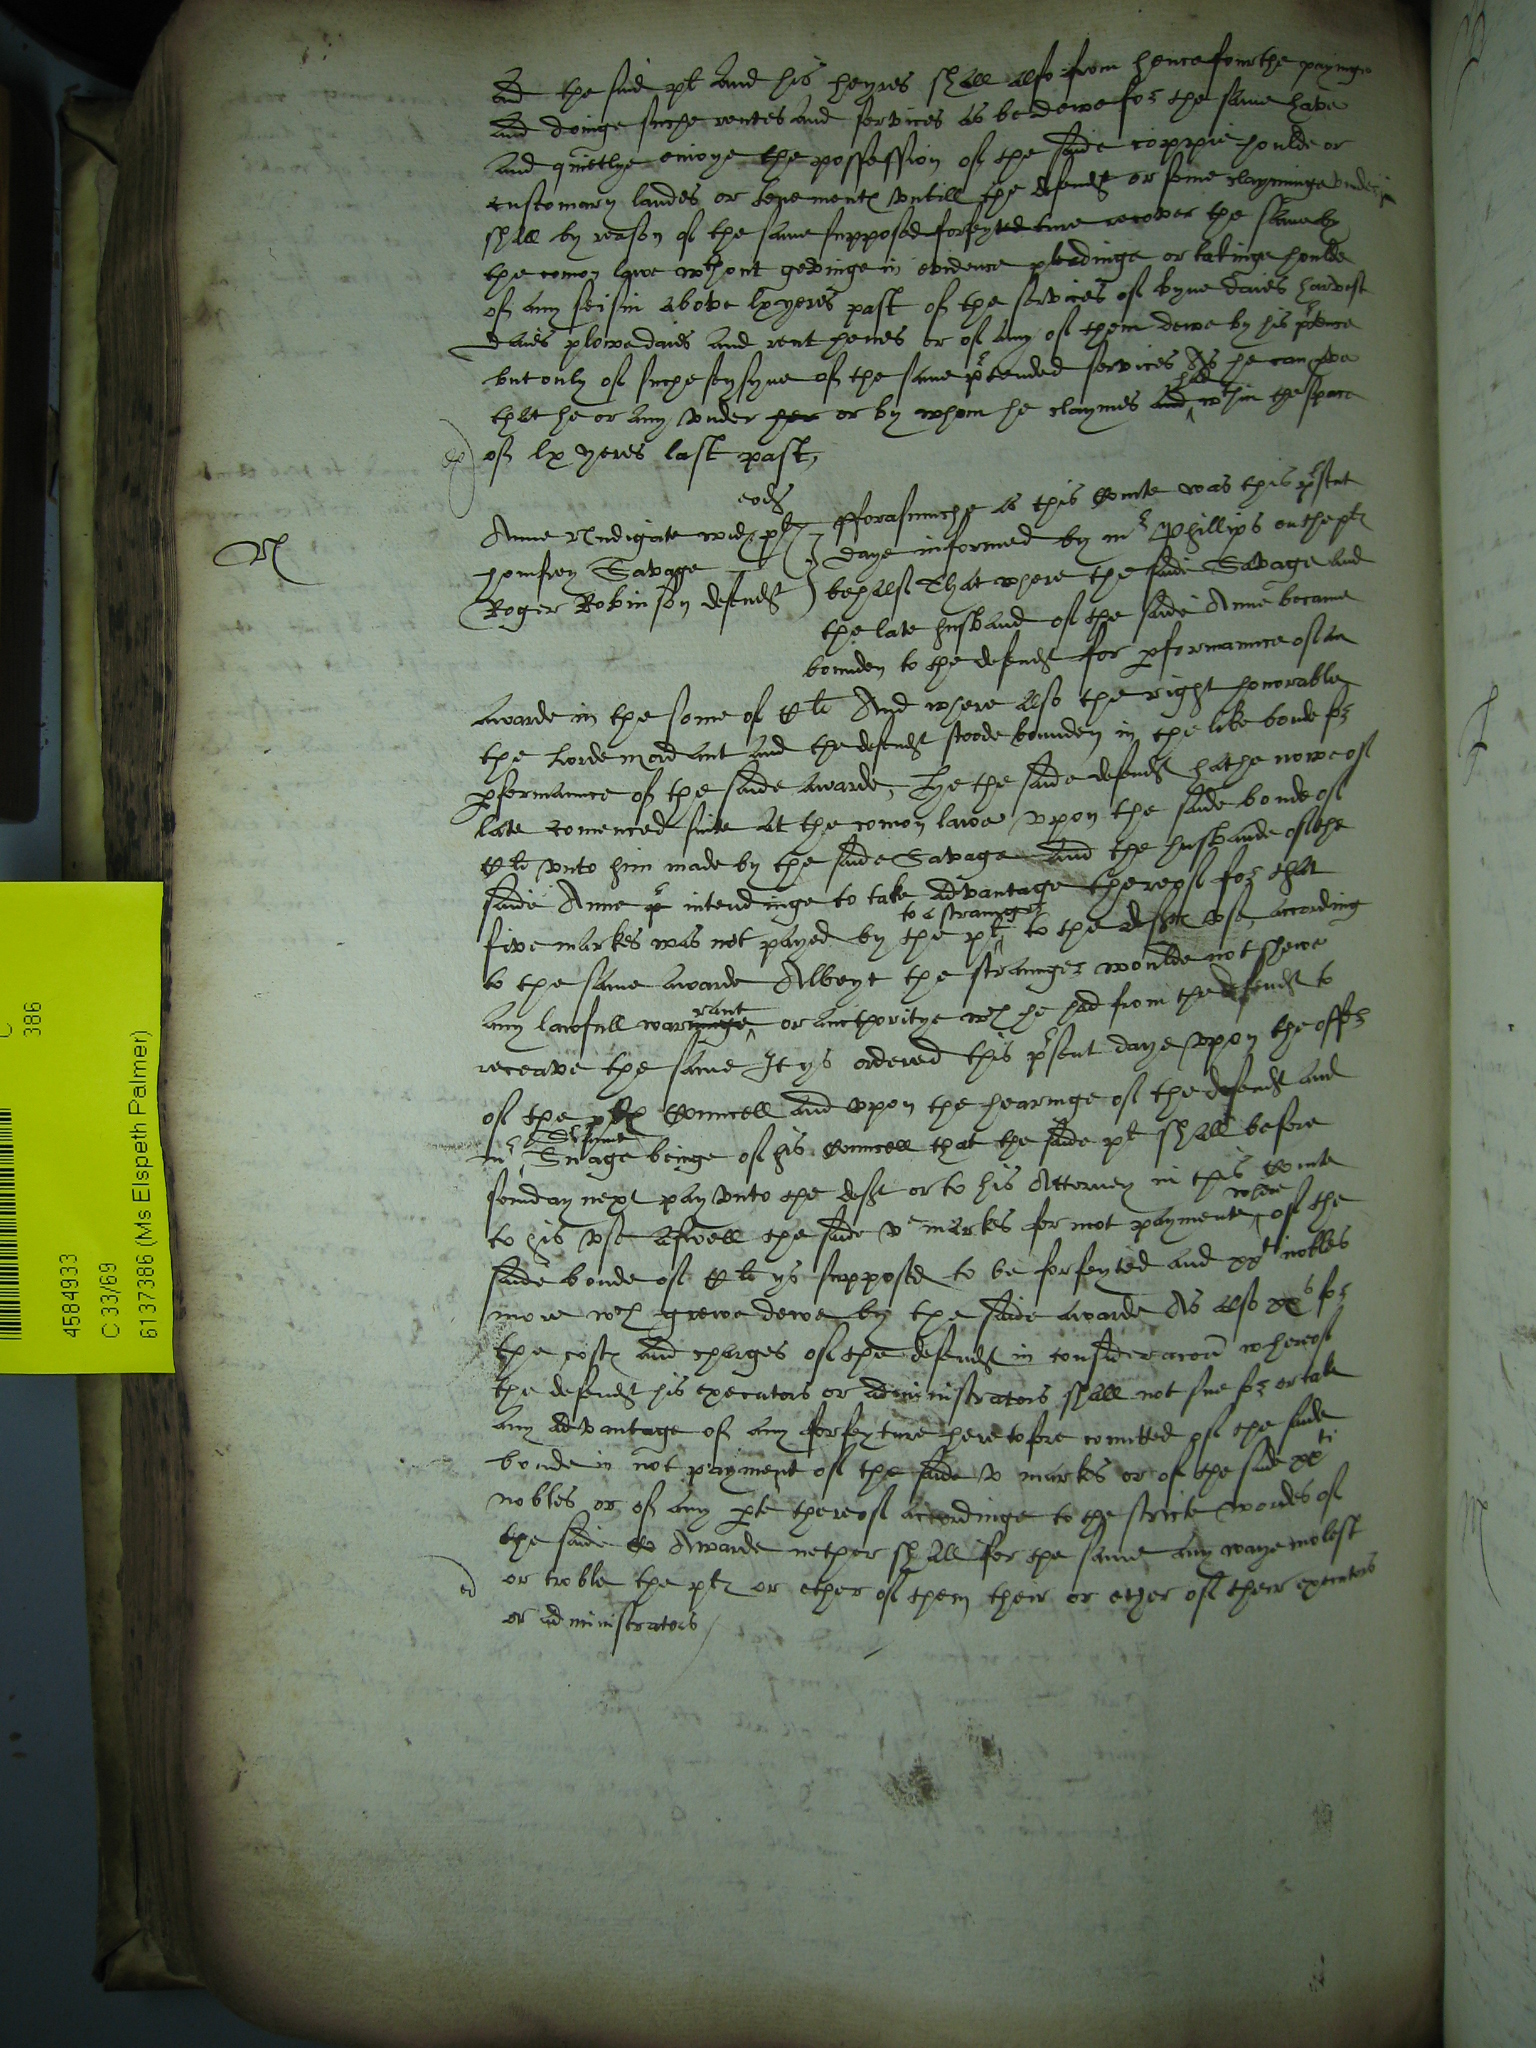 and the said plt and his heyres shall also from hencefourthe payinge
and doinge suche rentes and services as be dewe for the same have
and quietlye enioye the possession of the saide coppie houlde or
customary landes or tenementes untill the defendt or some clayminge under him
shall by reason of the same supposed forfeyture recover the same by
the comon lawe wthout gevinge in evidence pleadinge or takinge houlde
of any seisin above lx yeres past of the services of byne daies harvest
daies plowedaies and rent hennes or of any of them dewe by his ptence
but only of suche seysyne of the same ptended services As he can prove
that he or any under her or by whom he claymes had wthin the space
of lx yeres last past
eod
Anne Nudigate wid plt
homfrey Savage
Roger Robinson defendt
RL
fforasmuche as this Courte was this psent
daye informed by mr Phillips on the pltes
behalf That where the saide Savage and
the late husband of the saide Anne became
bounden to the defendt for pformaunce of an
awarde in the some of CC li And where also the right honorable
the Lorde Mordant and the defendt stoode bounden in the like bonde for
pformaunce of the saide awarde, the saide defendt hathe nowe of
late comenced suite at the comon lawe upon the saide bonde of
CC li unto him made by the saide Savage and the husbande of the
saide Anne intendinge to take advantage thereof for that
five markes was not payed by the plt to a straunger to the deftes use, according
to the same awarde Albeyt the straunger woulde not shewe
any lawfull warrant or aucthoritye wch he had from the defendt to
receave the same It ys ordered this psent daye upon the offer
of the pltes Councell and upon the hearinge of the defendt and
mr Snage beinge of his Councell that the saide plt shall before
sonday next pay unto the deft or to his Attorney in this Courte
to his use aswell the saide v markes for not paymente where of the
saide bonde of CC li ys supposed to be forfeyted and xx ti nobles
more wch grewe dewe by the saide awarde As also xx s for
the costes and charges of the defendt in consideracion whereof
the defendt his executors or administrators shall not sue for or take
any advantage of any forfeyture heretofore comitted of the saide
bonde in not payment of the saide v markes or of the saide xx ti
nobles or of any pte thereof accordinge to the stricte wordes of
the saide Awarde nether shall for the same any waye molest
or troble the pltes or ether of them their or ether of their executors
or administrators
ed
C
386
4584933
C 33/69
6137386 (Ms Elspeth Palmer)